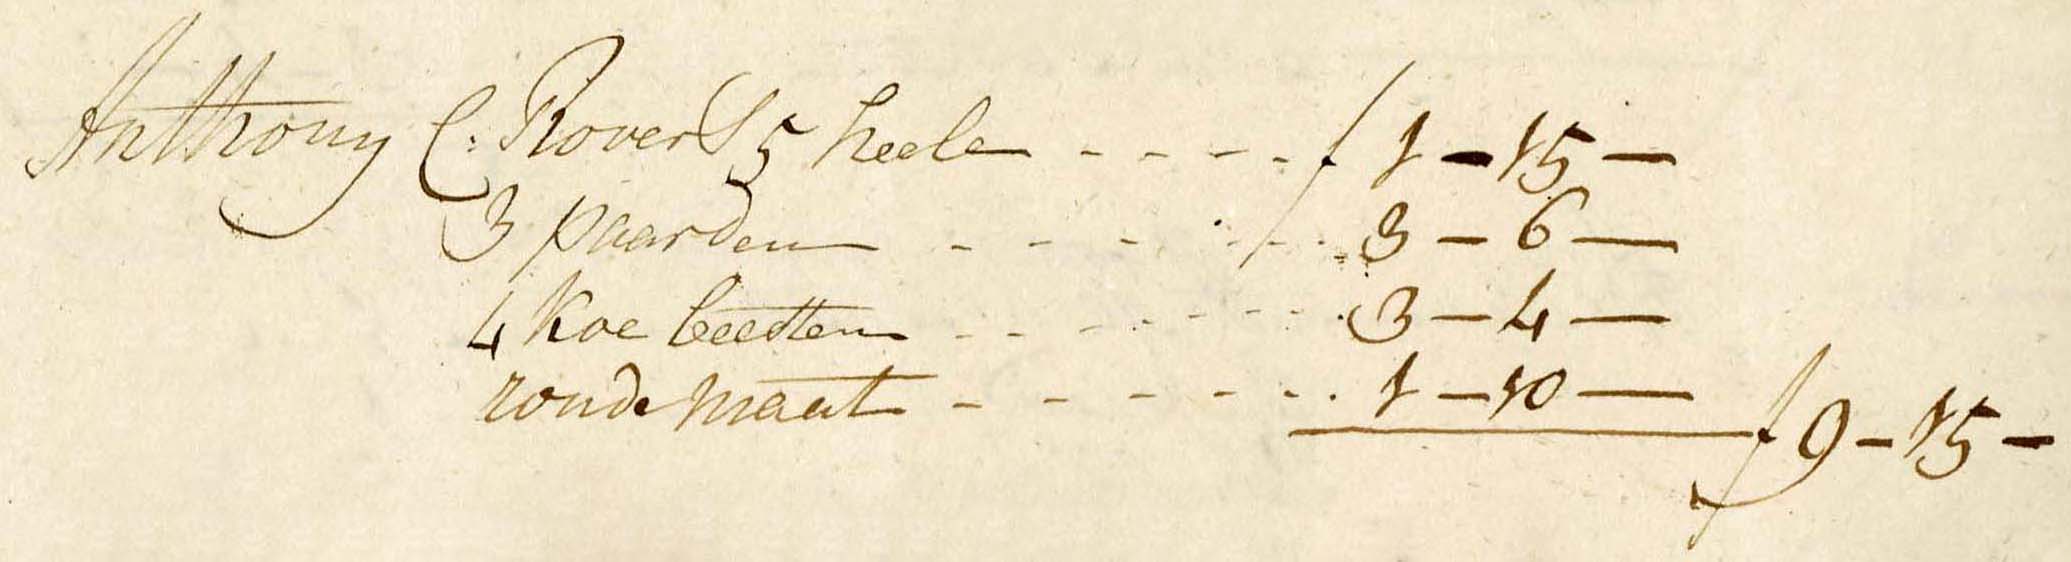 Anthony C: Rovers 5 heele - - - - f 1 - 15 -
3 paarden - - - - - 3 - 6 -
4 koe beesten - - - - - - - 3 - 4 -
ronde maat - - - - - - 1 - 10 -
f 9 - 15 -